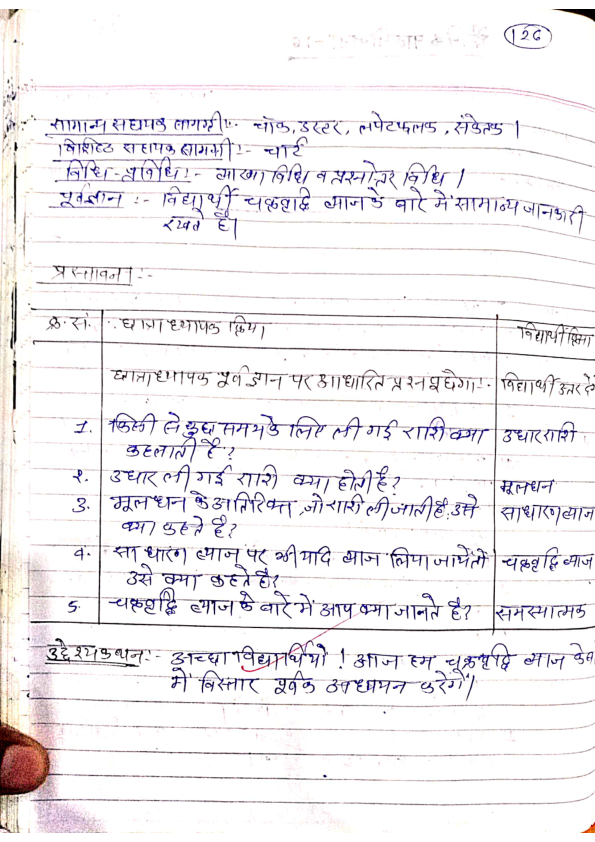 126
सामान्य सहायक सामग्री :- चॉक, डस्टर, लपेटफलक, संकेतक।
विशिष्ट सहायक सामग्री :- चार्ट
विधि-प्रविधि :- व प्रश्नोत्तर विधि।
पूर्वज्ञान :- विद्यार्थी चक्रवृद्धि ब्याज के बारे में सामान्य जानकारी
रखते है।
प्रस्तावना :-
क्र.सं. छात्राध्यापक क्रिया विद्यार्थी क्रिया
छात्राध्यापक पूर्वज्ञान पर आधारित प्रश्न पूछेगा :- विद्यार्थी उत्तर देंगे
1. किसी से कुछ समय के लिए ली गई राशि क्या उधार राशि
कहलाती है?
2. उधार ली गई राशि क्या होती है? मूलधन
3. मूलधन के अतिरिक्त जो राशी ली जाती है उसे साधारण ब्याज
क्या कहते है?
4. साधारण ब्याज पर भी यदि ब्याज लिया जाये तो चक्रवृद्धि ब्याज
उसे क्या कहते है?
5. चक्रवृद्धि ब्याज के बारे में आप क्या जानते है? समस्यात्मक
उद्देश्यकथन :- अच्छा विद्यार्थियों! आज हम चक्रवृद्धि ब्याज के
में विस्तार पूर्वक अध्ययन करेगें।